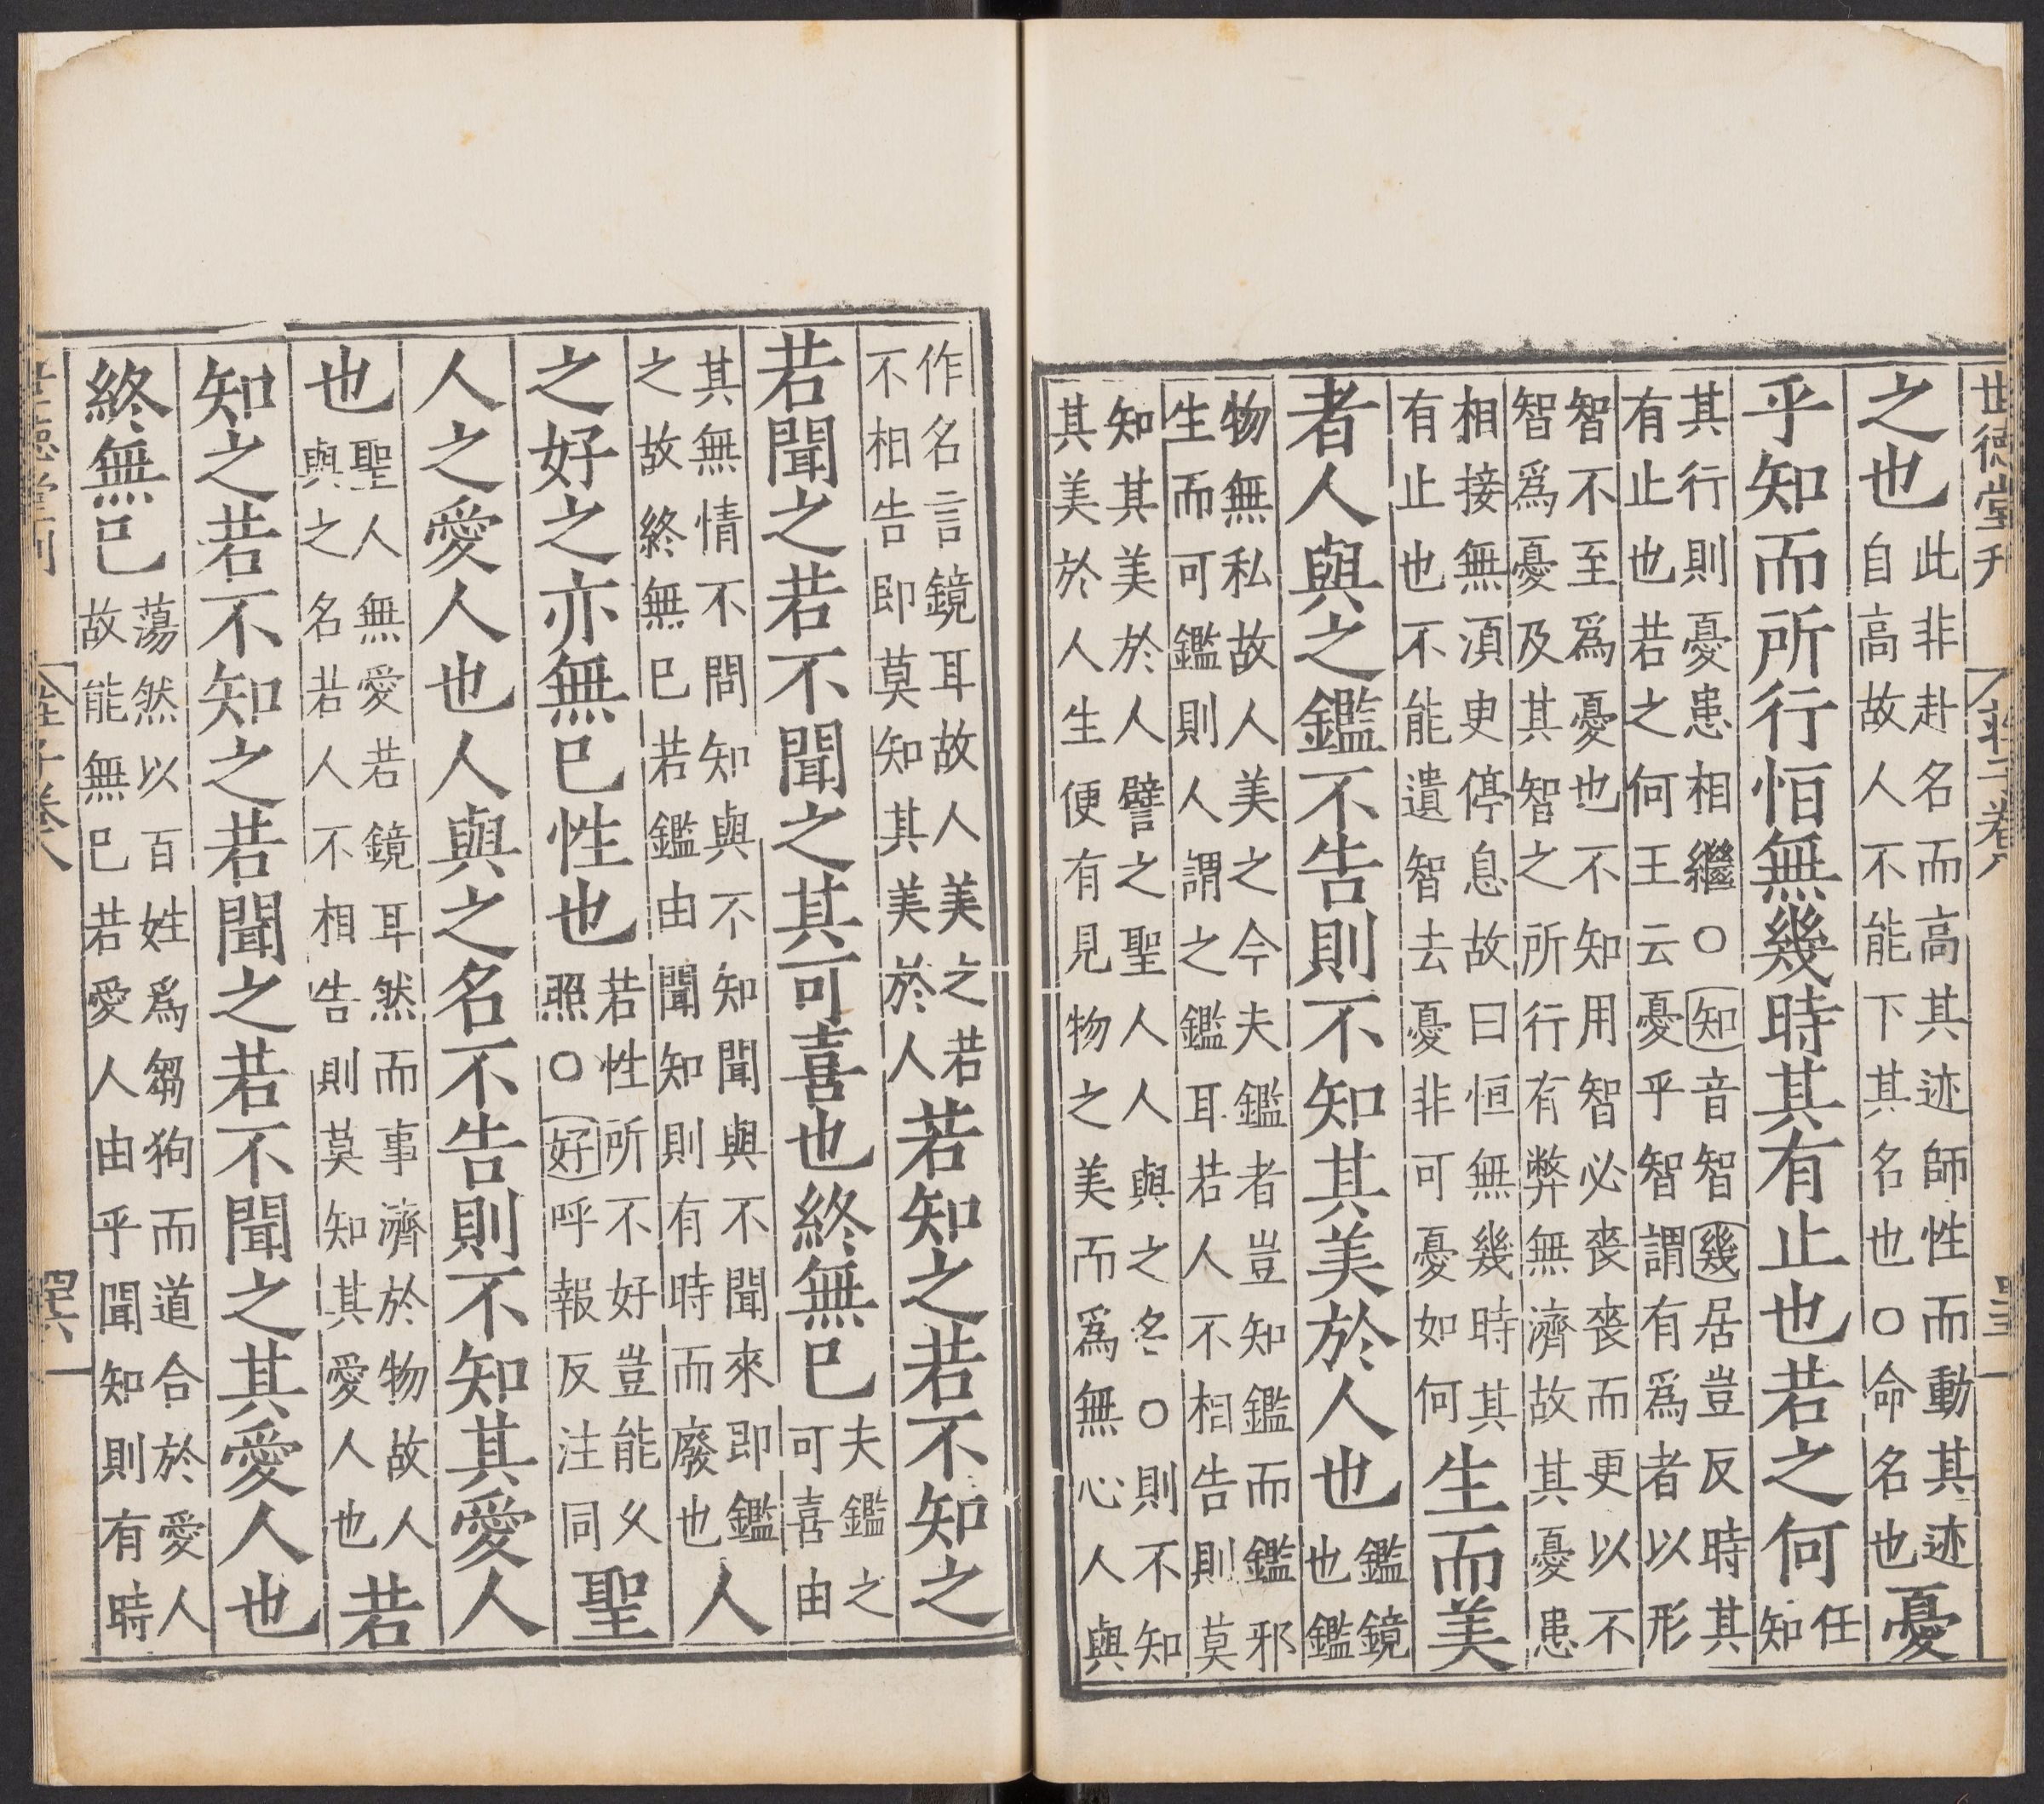 世德堂刊 莊子卷八
之也此非赴名而高其迹師性而動其迹自高故人不能下其名也○命名也憂
乎知而所行恒無幾時其有止也若之何任知
其行則憂患相繼○知音智幾居豈反時其
有止也若之何王云憂乎智謂有爲者以形
智不至爲憂也不知用智必喪喪而更以不
智爲憂及其智之所行有弊無濟故其憂患
相接無須臾停息故曰恒無幾時其有止也不能遺智去憂非可憂如何生而美
者人與之鑑不告則不知其美於人也鑑鏡也鑑
物無私故人美之今夫鑑者豈知鑑而鑑邪
生而可鑑則人謂之鑑耳若人不相告則莫
知其美於人譬之聖人人與之名○則不知
其美於人生便有見物之美而爲無心人與
作名言鏡耳故人美之若不相告即莫知其美於人若知之若不知之
若聞之若不聞之其可喜也終無已夫鑑之可喜由
其無情不問知與不知聞與不聞來即鑑之故終無已若鑑由聞知則有時而廢也人
之好之亦無已性也若性所不好好豈能久照○好呼報反注同聖
人之愛人也人與之名不告則不知其愛人
也聖人無愛若鏡耳然而事濟於物故人與之名若人不相告則莫知其愛人也若
知之若不知之若聞之若不聞之其愛人也
終無已蕩然以百姓爲芻狗而道合於愛人故能無已若愛人由乎聞知則有時
世德堂刊 莊子卷八